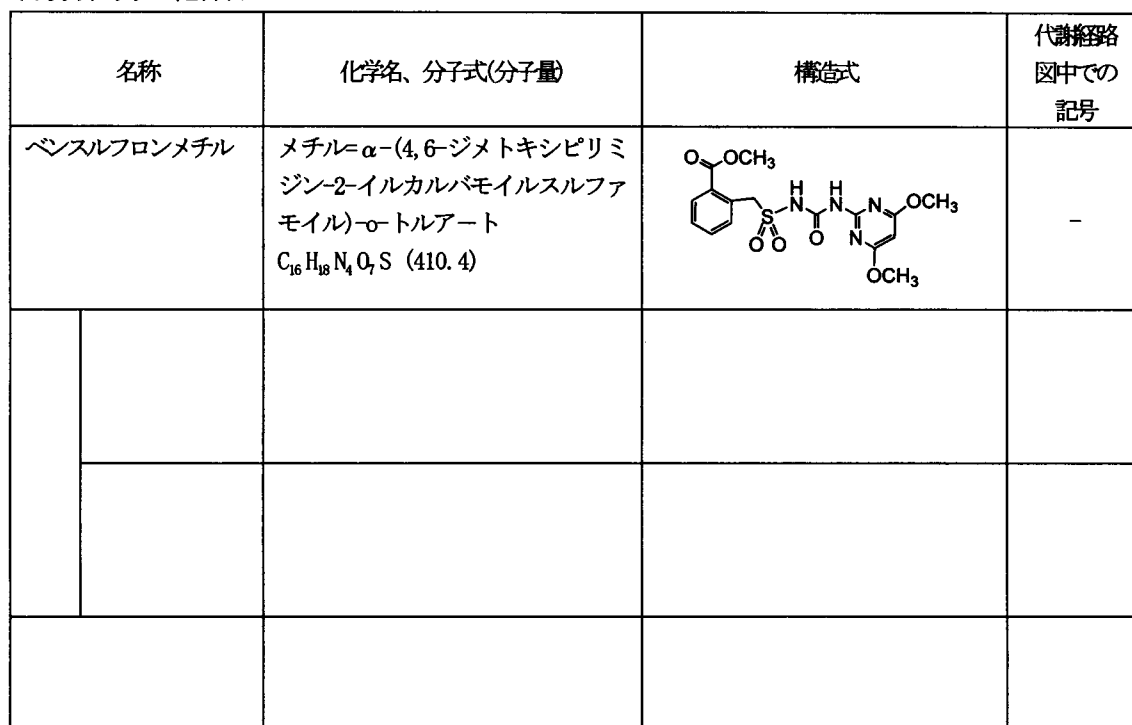 名称
化学名、分子式(分子量)
構造式
代謝経路
図中での
記号
ベンスルフロンメチル
メチル=α-(4,6-ジメトキシピリミ
ジン-2-イルカルバモイルスルファ
モイル)-o-トルアート
C₁₆H₁₈N₄O₇S (410.4)
O
OCH₃
H
N
H
N
N
OCH₃
S
N
O O
O
OCH₃
-